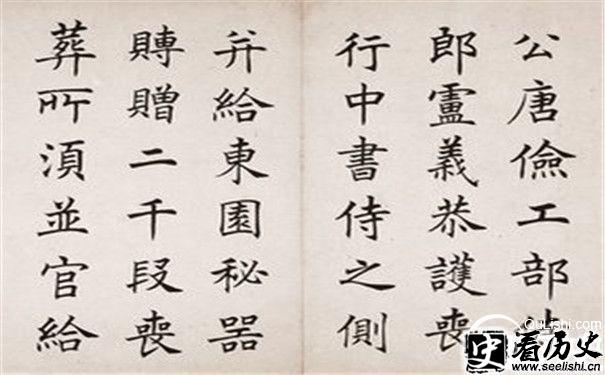 公唐儉工部
郎盧義恭護喪
行中書侍之側
并給東園秘器
賻贈二千段喪
葬所須並官給
QuLiShi.com
史 看历史
www.seelishi.cn